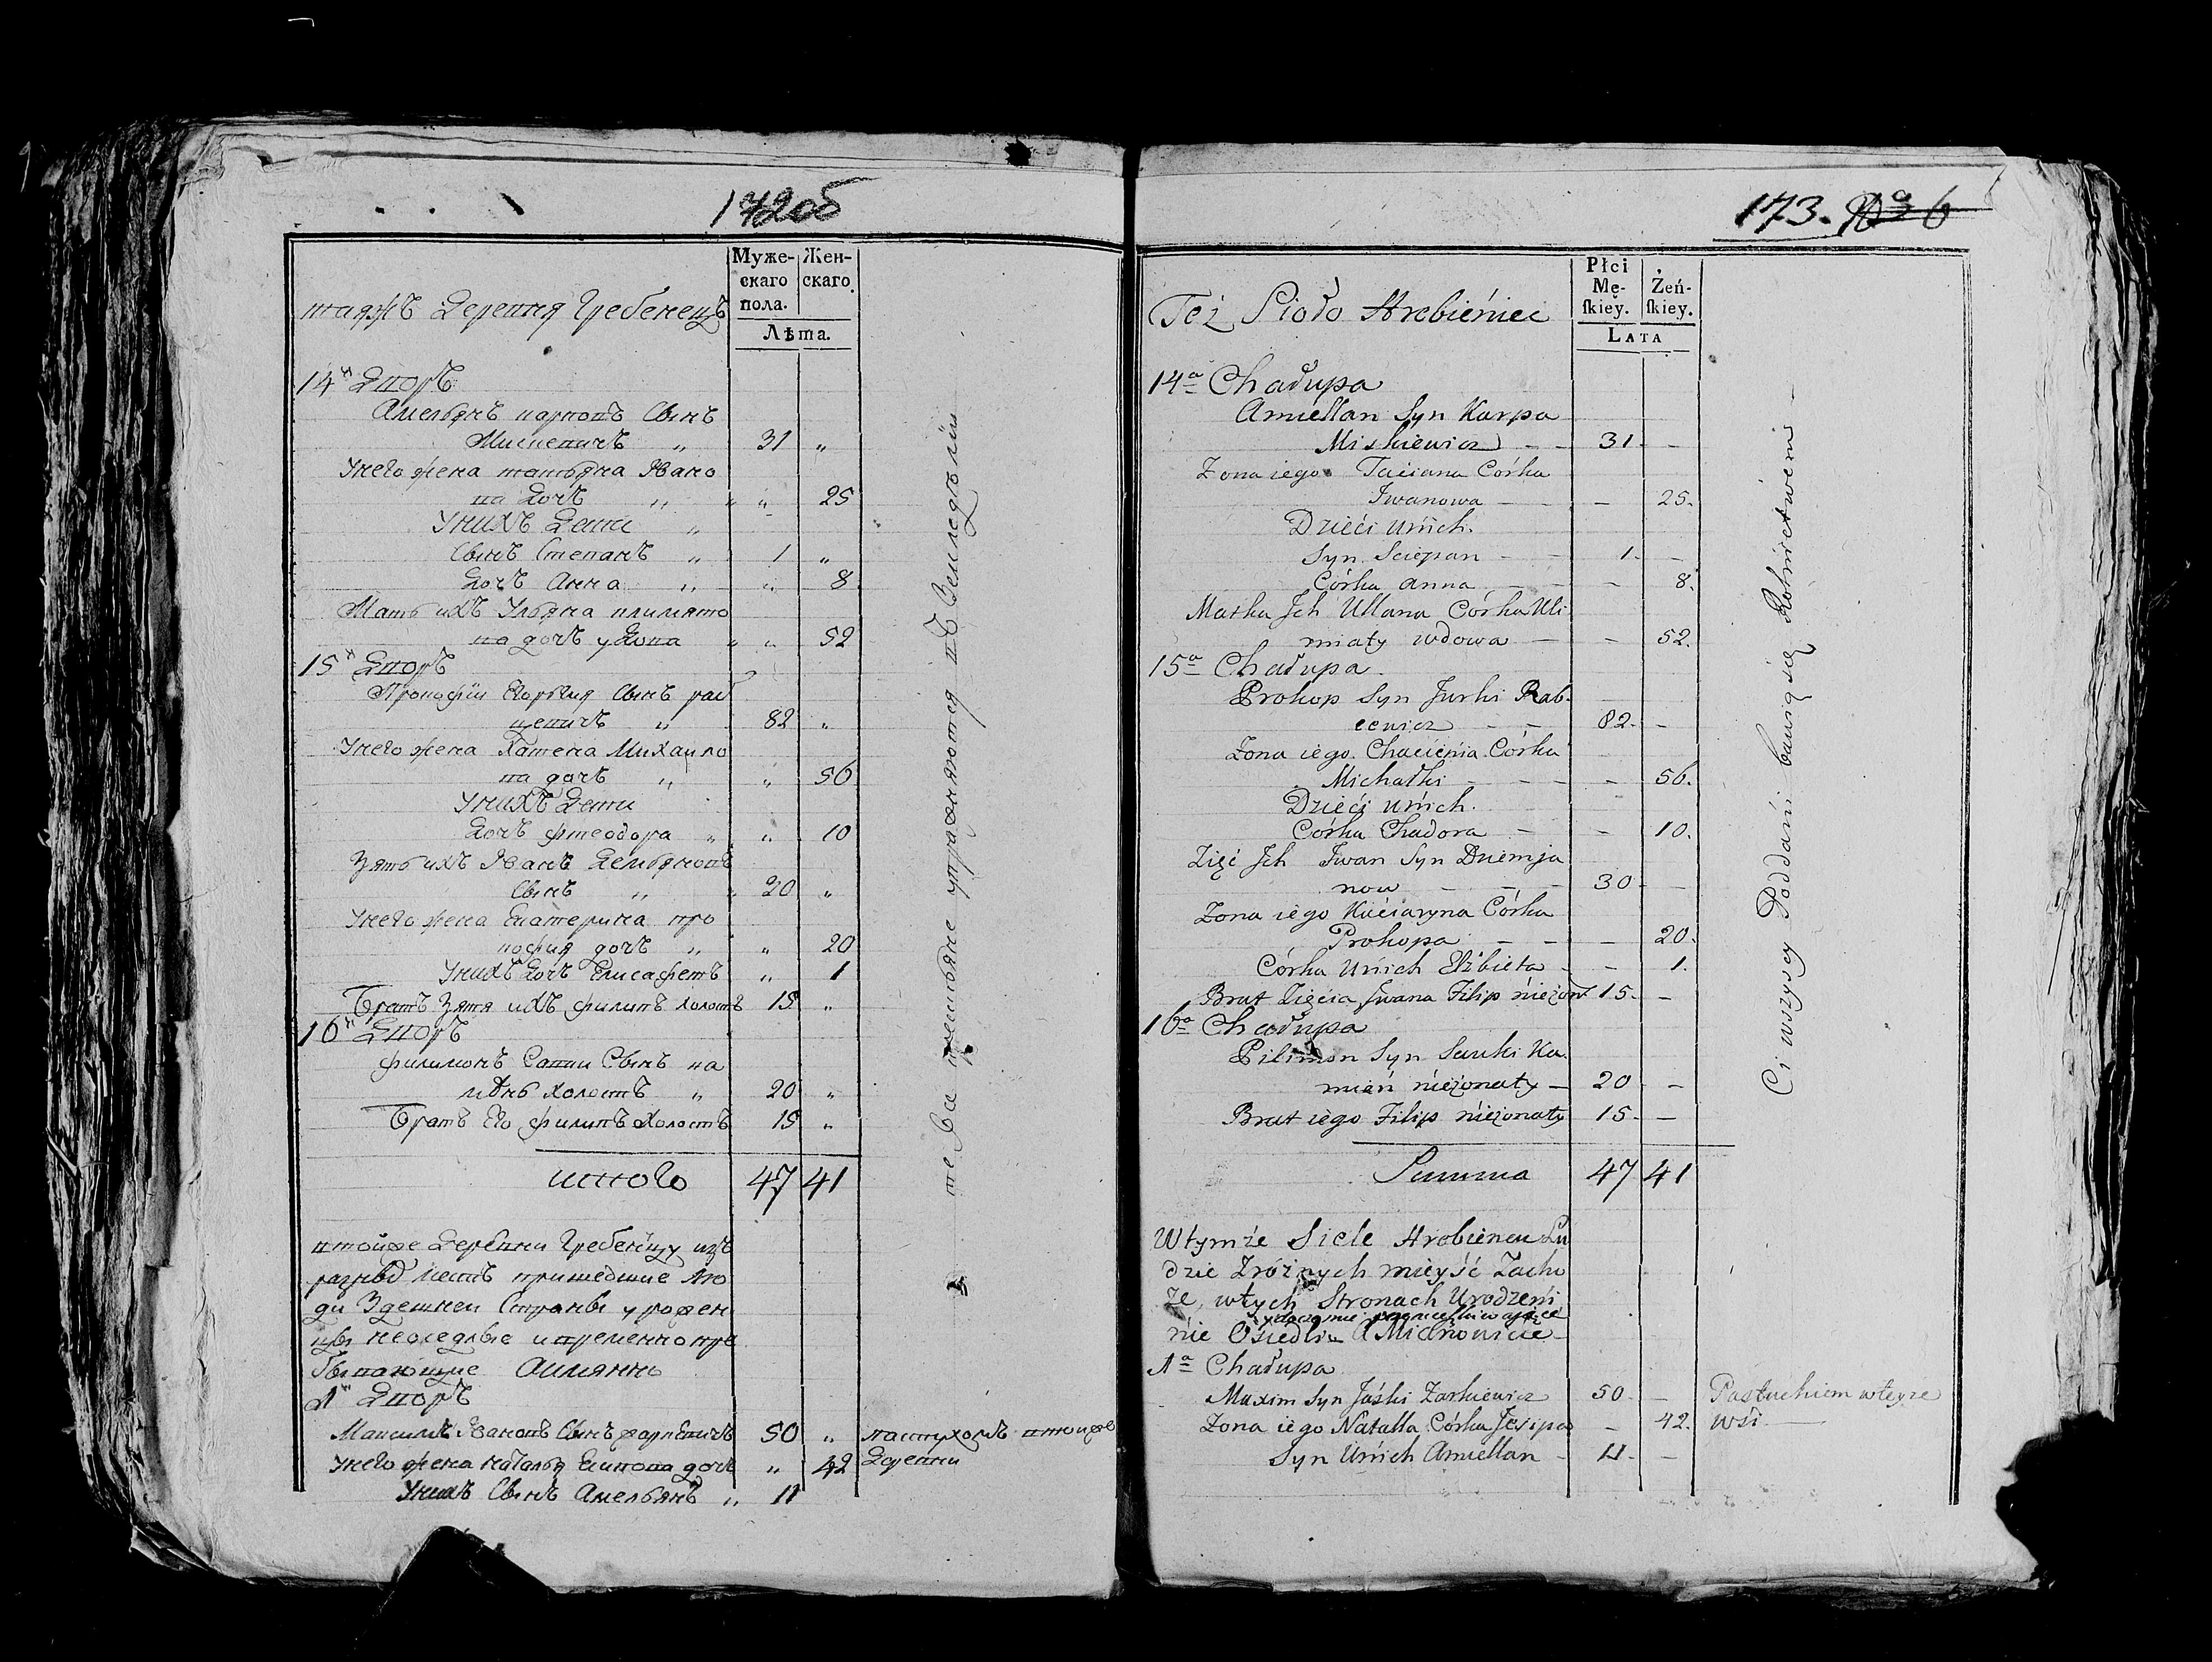 172об
Муже-
скаго
пола.
Жен-
скаго.
Лѣта.
таяжъ Деревня Гребенецъ
14й Дворъ
Амельянъ карповъ Сынъ
Мискевичъ „ 31 „
Унего жена татьяна Ивано
ва Дочь „ „ 25
Унихъ Дети „
Сынъ Степанъ „ 1 „
Дочь Анна „ „ 8
Мать ихъ Ульяна
ва дочь удова „ „ 52
15й Дворъ
Прокофїи Сынъ раб
цевичъ „ 82 „
Унего жена Хатена Михаило
ва дочь „ „ 56
Унихъ Дети
Дочь фтеодора „ „ 10
Зять ихъ Иванъ Демьяновъ
Сынъ „ „ 20 „
Унего жена Екатерина про
кофия дочь „ „ 20
Унихъ Дочь Елисафетъ „ 1
Братъ Зятя ихъ филипъ холостъ 15 „
16й Дворъ
филимонъ Савки Сынъ ка
мѣнь холостъ „ 20 „
Братъ Его филипъ Холостъ 15 „
итого 47 41
втойже Деревни Гребенцу изъ
разныхъ местъ пришедшие лю
ди Здешней Страны урожен
цы неоседлые ивременнопре
бывающие Аимянно
1й Дворъ
Максимъ Ивановъ Сынъ жаркевичъ 50 „ пастухомъ втойже
Унего жена наталья Есипова дочь „ 42 Деревни
Унихъ Сынъ Амельянъ „ 11
те Вси крестьяне упражняются въ Земледѣлїи
173. № 6
Płci
Mę-
skiey.
Żeń-
skiey.
LATA
Też Sioło Hrebieniec
14a Chałupa
Amiellan Syn Karpa
Miskiewicz – – 31. –
Zona iego Taciana Córka
Iwanowa – – – 25.
Dzieci Unich.
Syn Sciepan – – 1. –
Córka Anna – – – 8.
Matka Ich Ullana Córka Uli
miaty wdowa – – 52.
15a Chałupa.
Prokop Syn Jurki Rab-
cewicz – – 82. –
Zona iego Chacienia Córka
Michałki – – – – 56.
Dzieci Unich.
Córka Chadora – – 10.
Zięć Ich Iwan Syn Dziemja
now – – – 30 –
Zona iego Kaciaryna Córka
Prokopa – – – 20.
Córka Unich Elżbieta – – 1.
Brat Zięcia Iwana Filip nieżont 15. –
16a Chałupa
Pilimon Syn Sauki Ka-
mień nieżonaty – 20 –
Brat iego Filip nieżonaty 15. –
Summa 47 41
Wtymże Siele Hrebiencu Lu
dzie Zrożnych mieyść Zacho
że, wtych Stronach Urodzeni
nie Osiedli A Mianowicie –
1a Chałupa
Maxim Syn Jaśki Zarkiewicz 50. – Pastuchiem wteyze
Zona iego Natalla Córka Jesipa – 42. wsi –
Syn Unich Amiellan – 11. –
Ci wszyscy Poddani bawią się Rolnictwem –